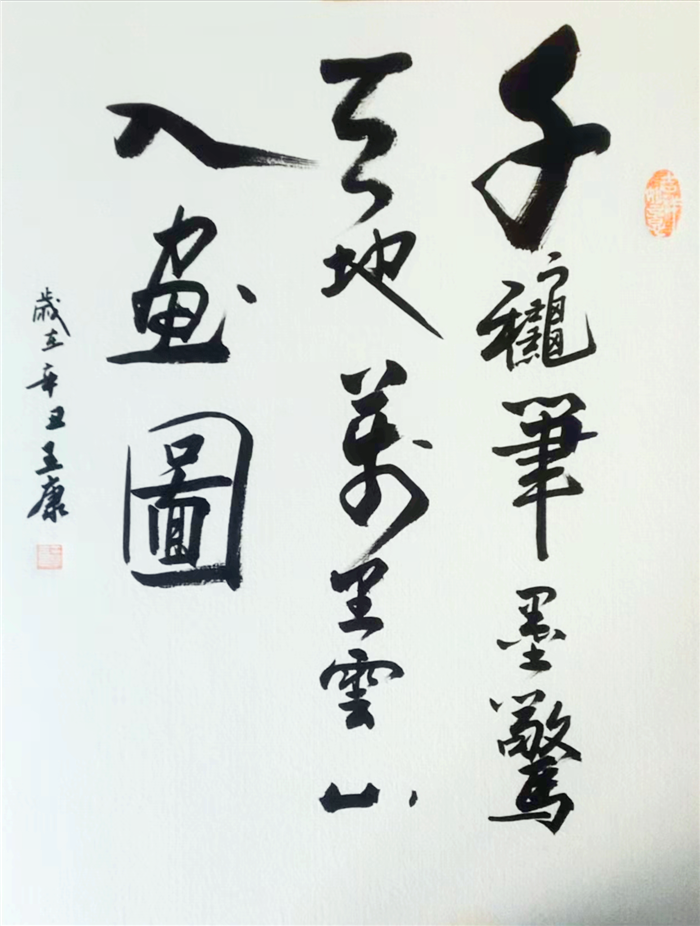 千穐筆墨驚
天地萬里雲山
入畫圖
歲在辛丑王康